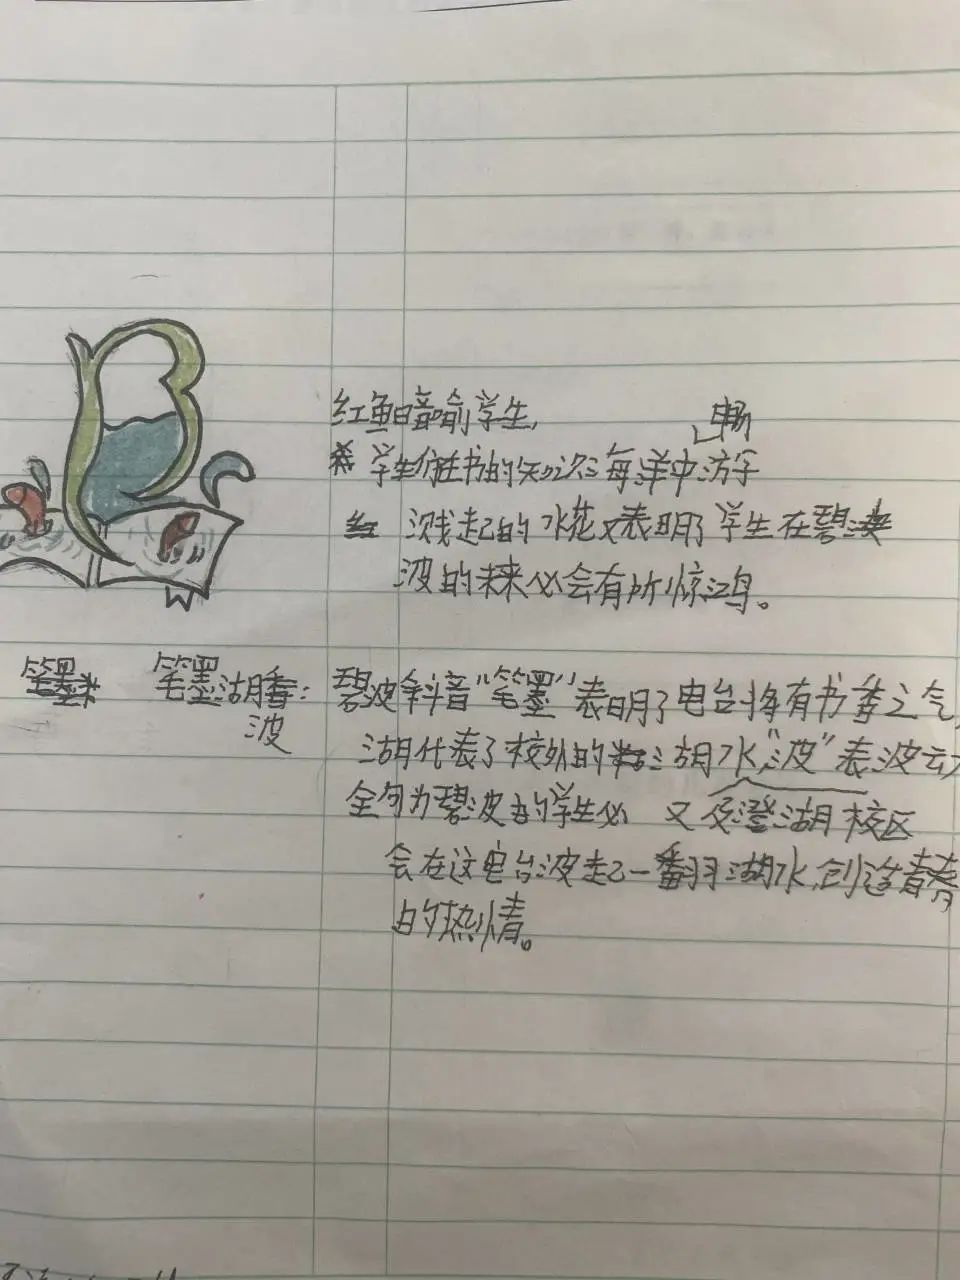 红鱼暗喻学生，
畅
学生们在书的知识海洋中游字
溅起的水花又表明了学生在碧
波的未来必会有所惊鸿。
笔墨 笔墨湖香：碧波斜音“笔墨”表明了电台将有书香之气，
波 湖代表了校外的湖水，“波”表波动
全句为碧波的学生必 又及澄湖校区
会在这电台波起一翻湖水，创造青春
的热情。